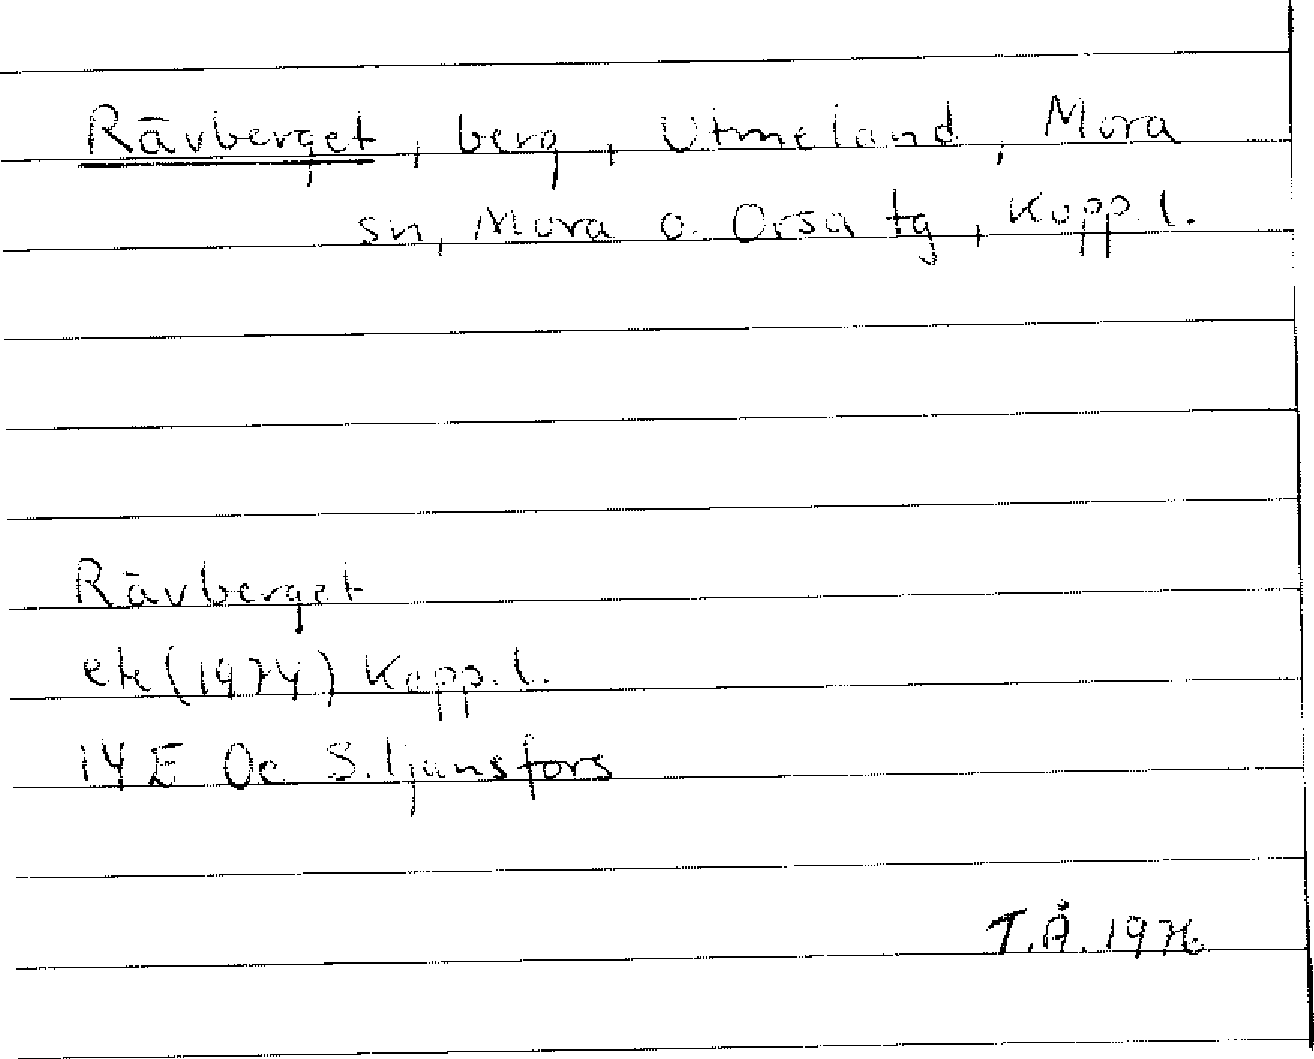 Rävberget, berg, Utmeland, Mora
sn, Mora o. Orsa tg, Kopp.l.
Rävberget
ek (1974) Kopp.l.
14 E 0c S.ljansfors
T.Å. 1976